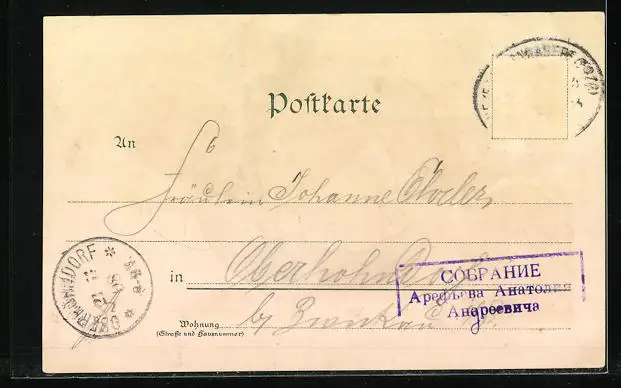 Postkarte
An
Fräulein Johanne
in Oberhohndorf
СОБРАНИЕ
Арефьева Анатолия
Андреевича
Wohnung
(Straße und Hausnummer)
b/ Zwickau
OBERHOHNDORF